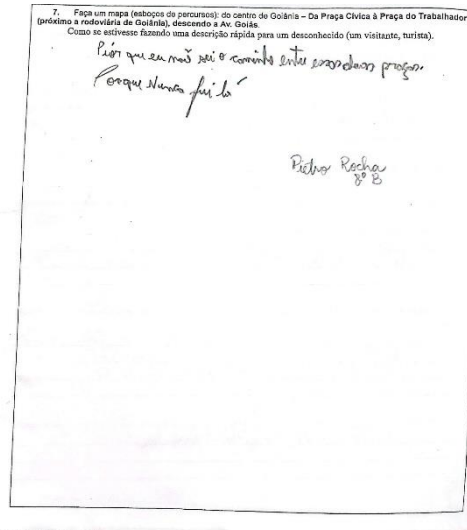 7. Faça um mapa (esboços de percursos): do centro de Goiânia – Da Praça Cívica à Praça do Trabalhador
(próximo a rodoviária de Goiânia), descendo a Av. Goiás.
Como se estivesse fazendo uma descrição rápida para um desconhecido (um visitante, turista).
Piór que eu não sei o caminho entre essas duas praças.
Porque Nunca fui lá
Pietro Rocha
8º B